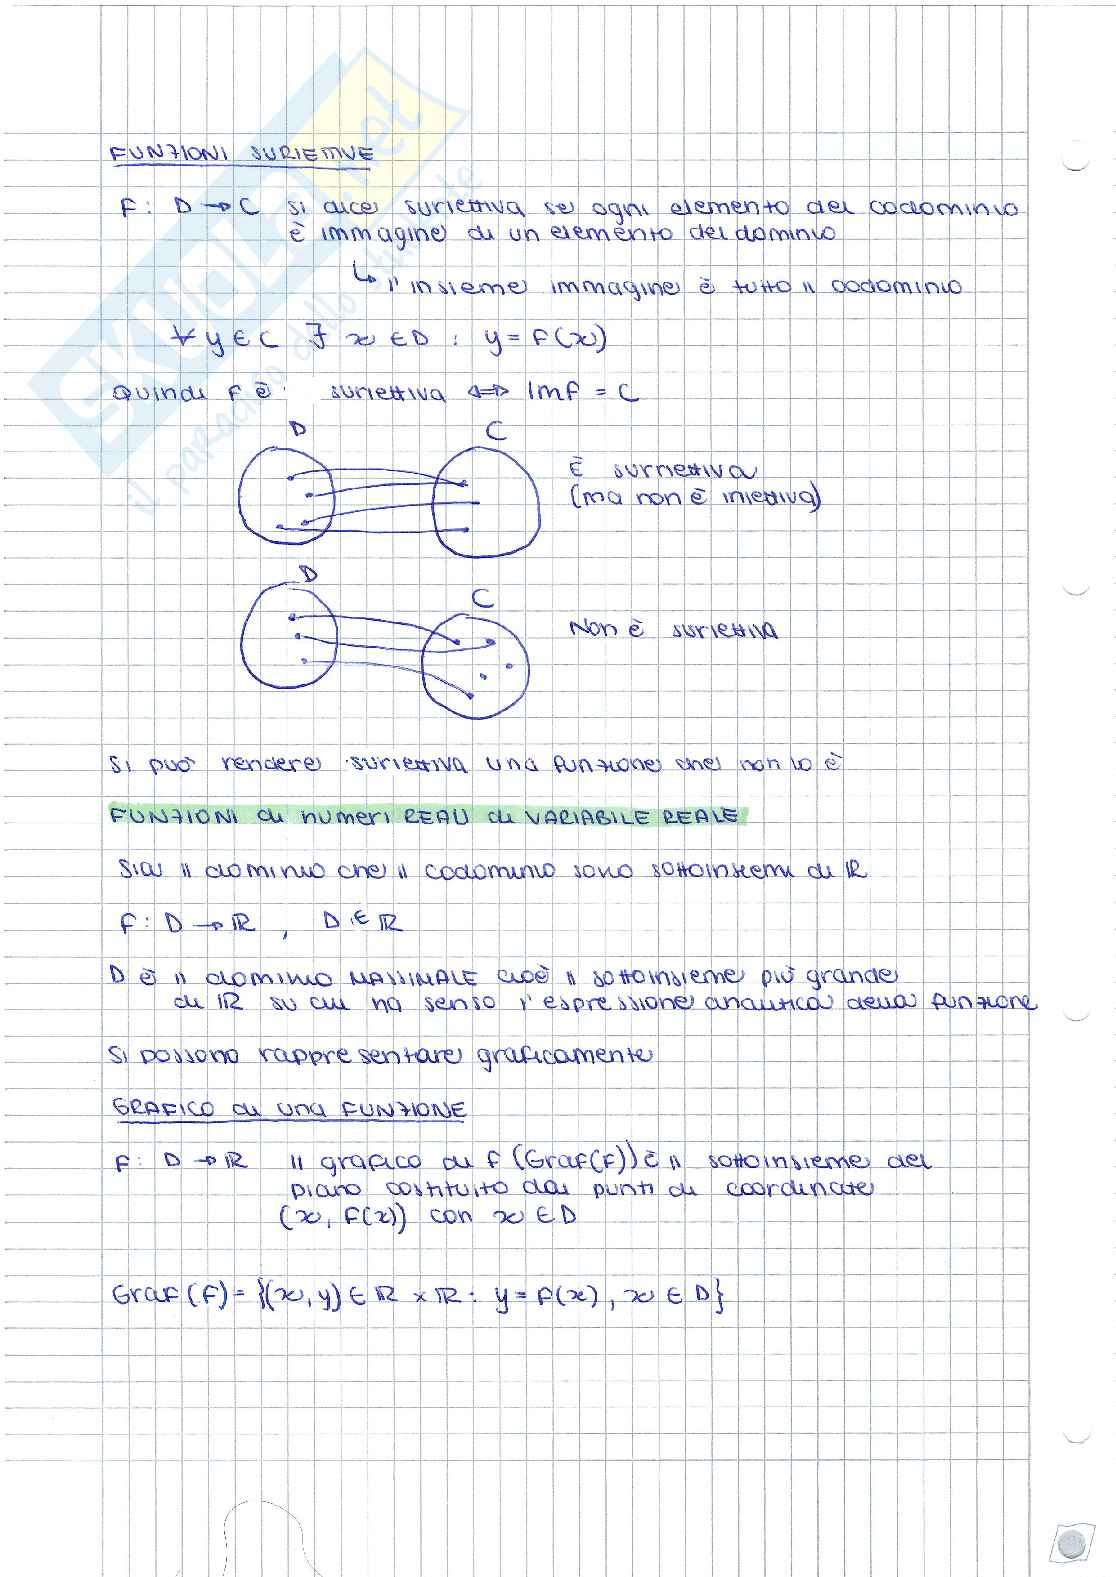 SKUOLA.net
il paradiso dello studente
FUNZIONI SURIETTIVE
F: D → C si dice suriettiva se ogni elemento del codominio
è immagine di un elemento del dominio
↳ l'insieme immagine è tutto il codominio
∀ y ∈ C ∃ x ∈ D : y = F(x)
Quindi F è suriettiva ⇔ Imf = C
D C
È suriettiva
(ma non è iniettiva)
D C
Non è suriettiva
Si può rendere suriettiva una funzione che non lo è
FUNZIONI di numeri REALI di VARIABILE REALE
Sia il dominio che il codominio sono sottoinsiemi di ℝ
F: D → ℝ , D ∈ ℝ
D è il dominio MASSIMALE cioè il sottoinsieme più grande
di ℝ su cui ha senso l'espressione analitica della funzione
Si possono rappresentare graficamente
GRAFICO di una FUNZIONE
F: D → ℝ il grafico di f (Graf(F)) è il sottoinsieme del
piano costituito dai punti di coordinate
(x, F(x)) con x ∈ D
Graf(F) = {(x,y) ∈ ℝ × ℝ : y = F(x), x ∈ D}